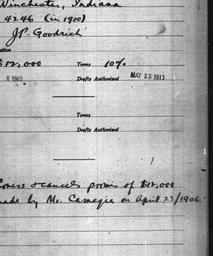 Winchester, Indiana
4246 (in 1910)
J.P. Goodrich
$12,000 Terms 10%
6 1915 Drafts Authorized MAY 25 1915
Terms
Drafts Authorized
cancels promise of $12,000
made by Mr. Carnegie on April 23/1906